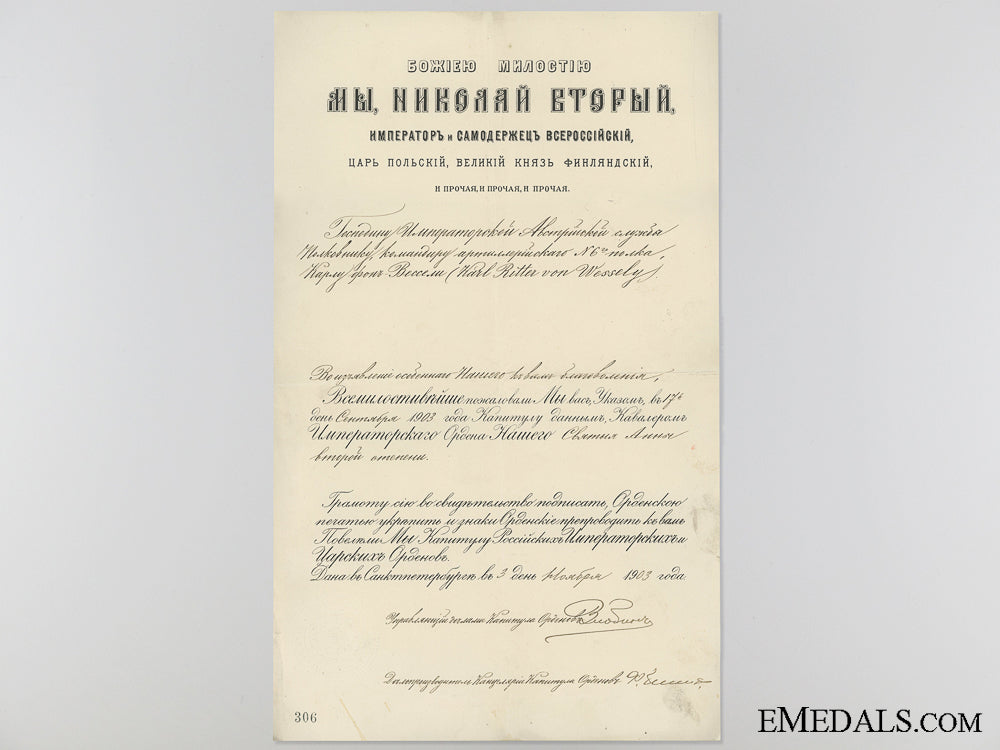 БОЖІЕЮ МИЛОСТІЮ
МЫ, НИКОЛАЙ ВТОРЫЙ,
ИМПЕРАТОРЪ и САМОДЕРЖЕЦЪ ВСЕРОССІЙСКІЙ,
ЦАРЬ ПОЛЬСКІЙ, ВЕЛИКІЙ КНЯЗЬ ФИНЛЯНДСКІЙ,
И ПРОЧАЯ, И ПРОЧАЯ, И ПРОЧАЯ.
Господину Императорской Австрійской службы
Полковнику, командиру артиллерійскаго №6го полка,
Карлу фонъ Вессели (Karl Ritter von Wessely).
Во изъявленіе особеннаго Нашего къ вамъ благоволенія,
Всемилостивѣйше пожаловали Мы васъ, Указомъ, въ 17й
день Сентября 1903 года Капитулу даннымъ, Кавалеромъ
Императорскаго Ордена Нашего Святыя Анны
второй степени.
Грамоту сію во свидѣтельство подписать, Орденскою
печатью укрѣпить и знаки Орденскіе препроводить къ вамъ
Повелѣли Мы Капитулу Россійскихъ Императорскихъ и
Царскихъ Орденовъ.
Дана въ Санктпетербургѣ въ 3 день Ноября 1903 года
Управляющій дѣлами Капитула Орденовъ
Дѣлопроизводитель Канцеляріи Капитула Орденовъ
306
EMEDALS.COM